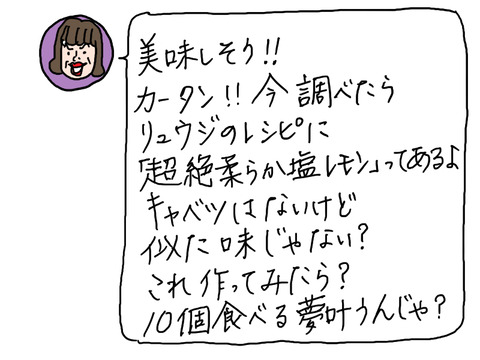 美味しそう!!
カータン!!今調べたら
リュウジのレシピに
「超絶柔らか塩レモン」ってあるよ
キャベツはないけど
似た味じゃない?
これ作ってみたら?
10個食べる夢叶うんじゃ?